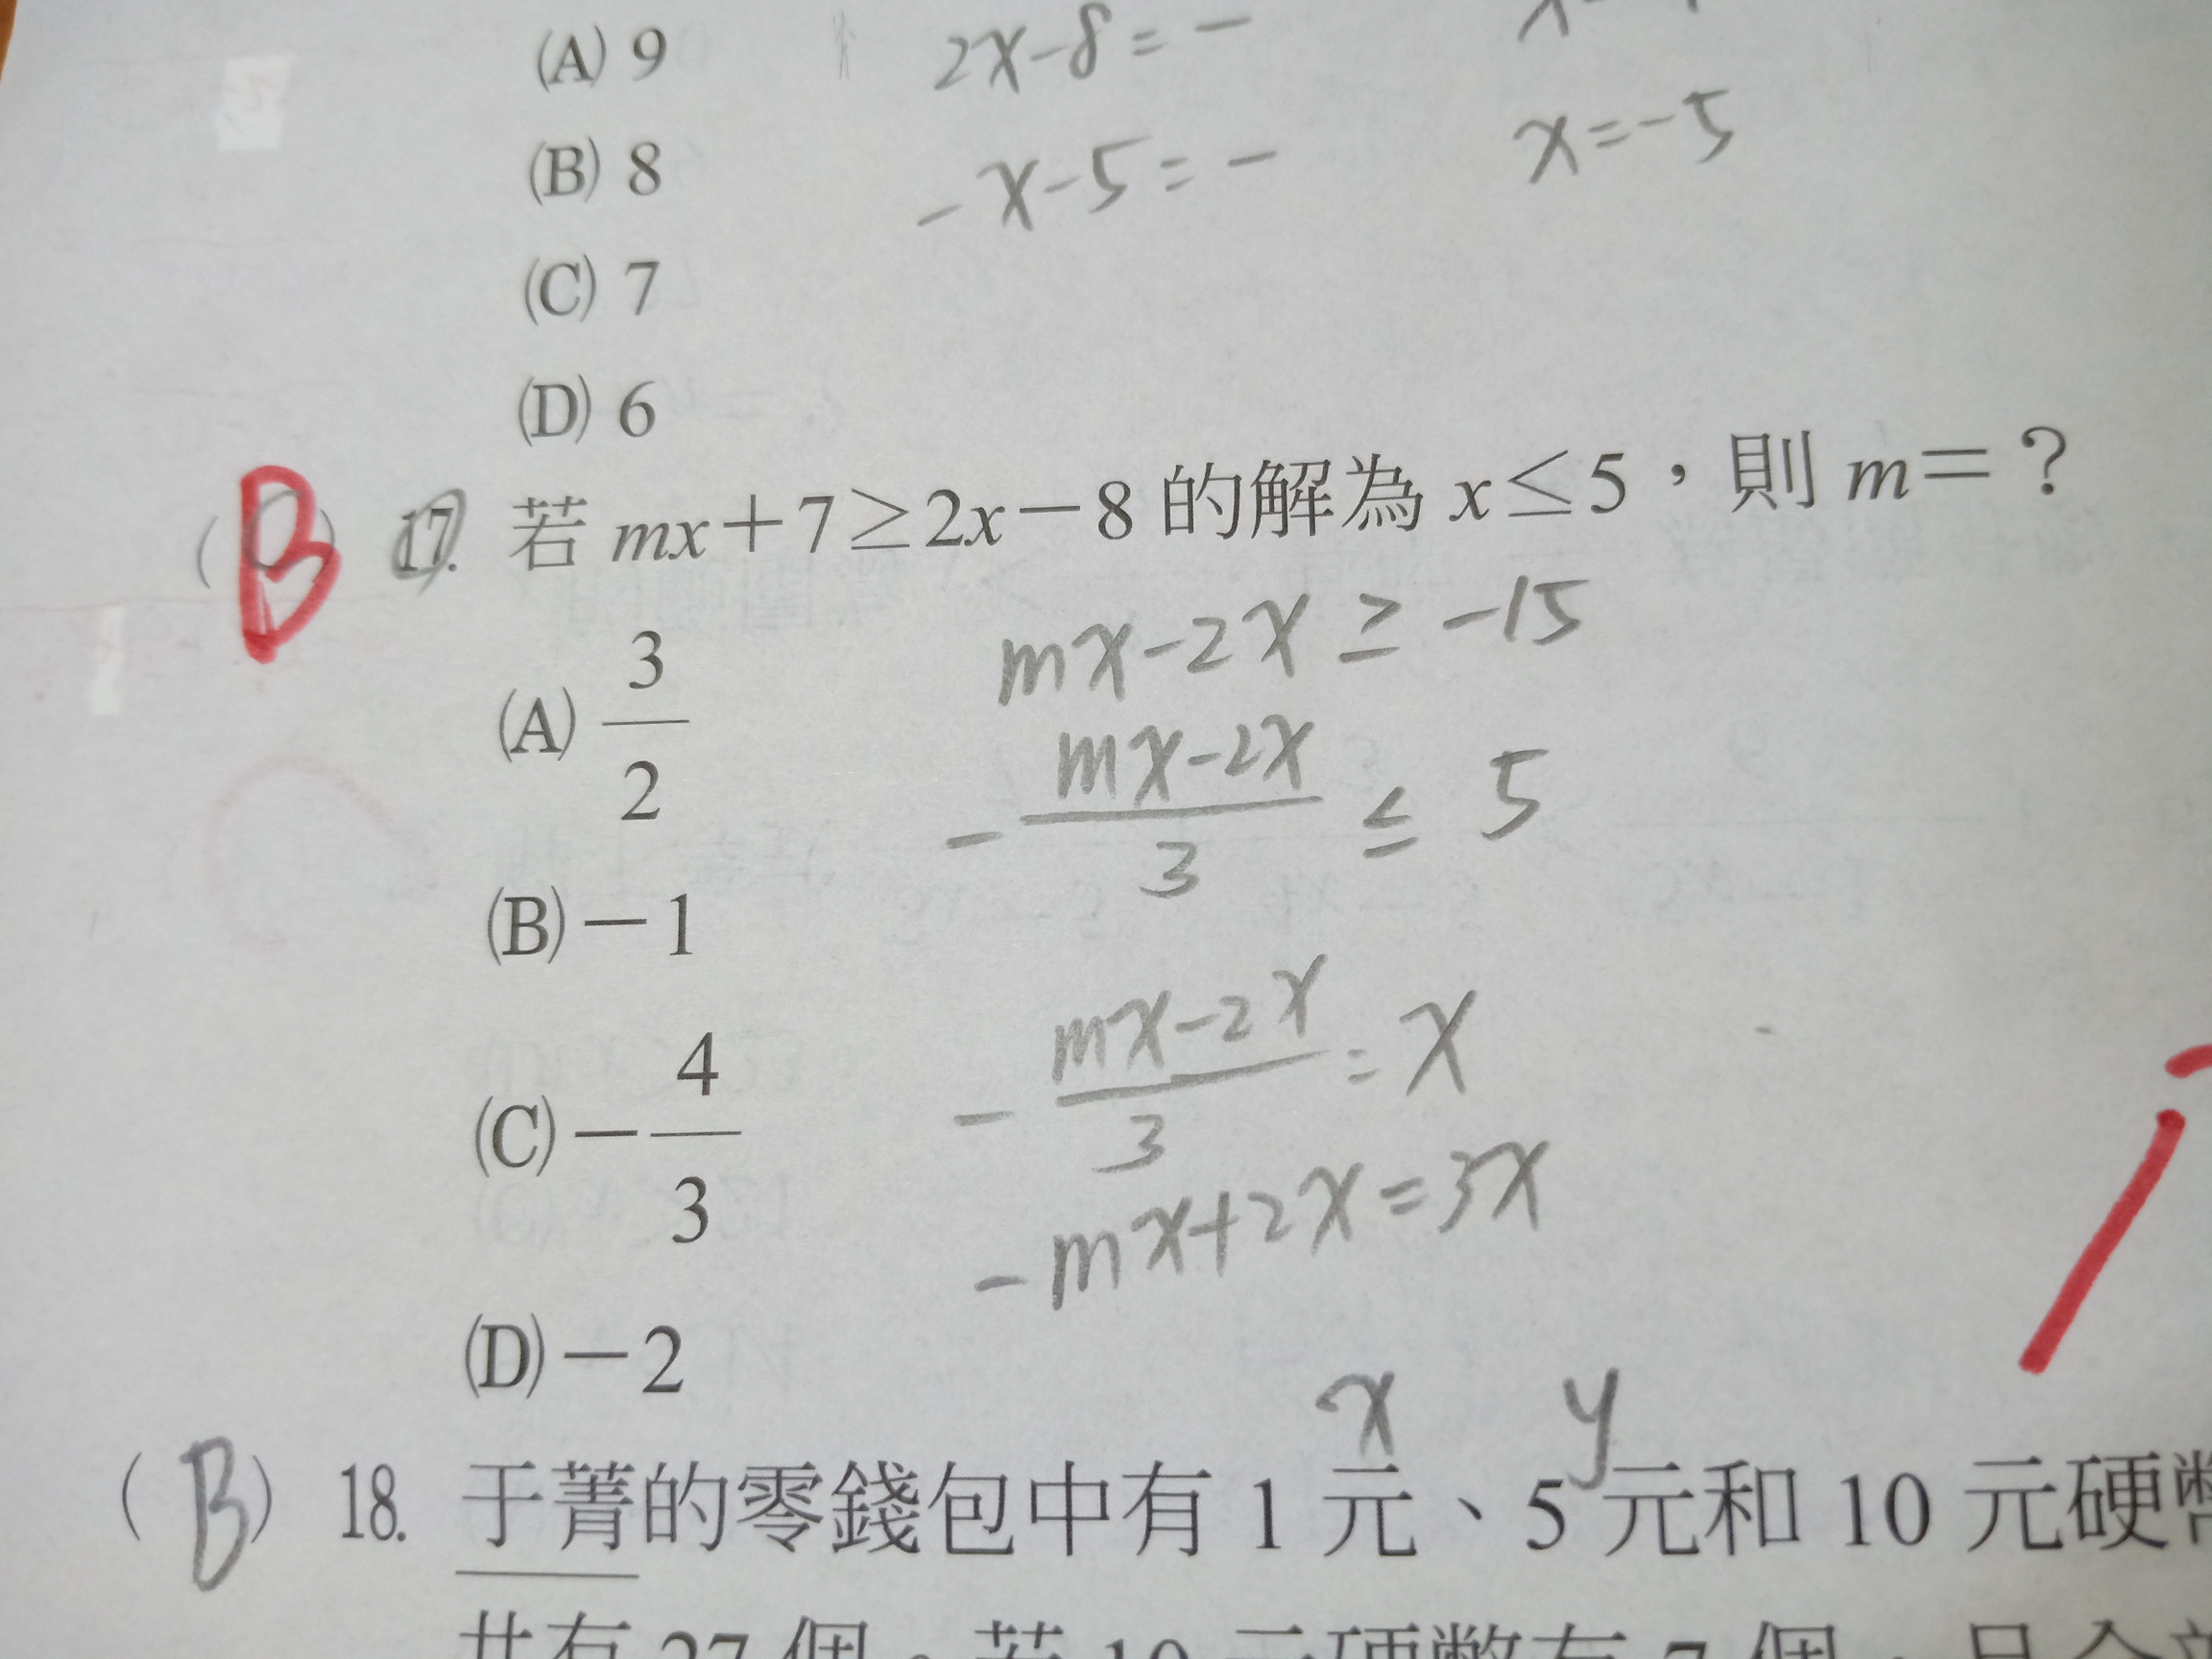 (A) 9 2x-8=-
(B) 8 -x-5=- x=-5
(C) 7
(D) 6
(B) 17. 若 mx+7≥2x-8 的解為 x≤5,則 m=?
mx-2x ≥ -15
(A) 3/2
-(mx-2x)/3 ≤ 5
(B) -1
-(mx-2x)/3 = x
(C) -4/3
-mx+2x=3x
(D) -2
x y
(B) 18. 于菁的零錢包中有 1 元、5 元和 10 元硬幣
共有 27 個。若 10 元硬幣有 7 個,且全部